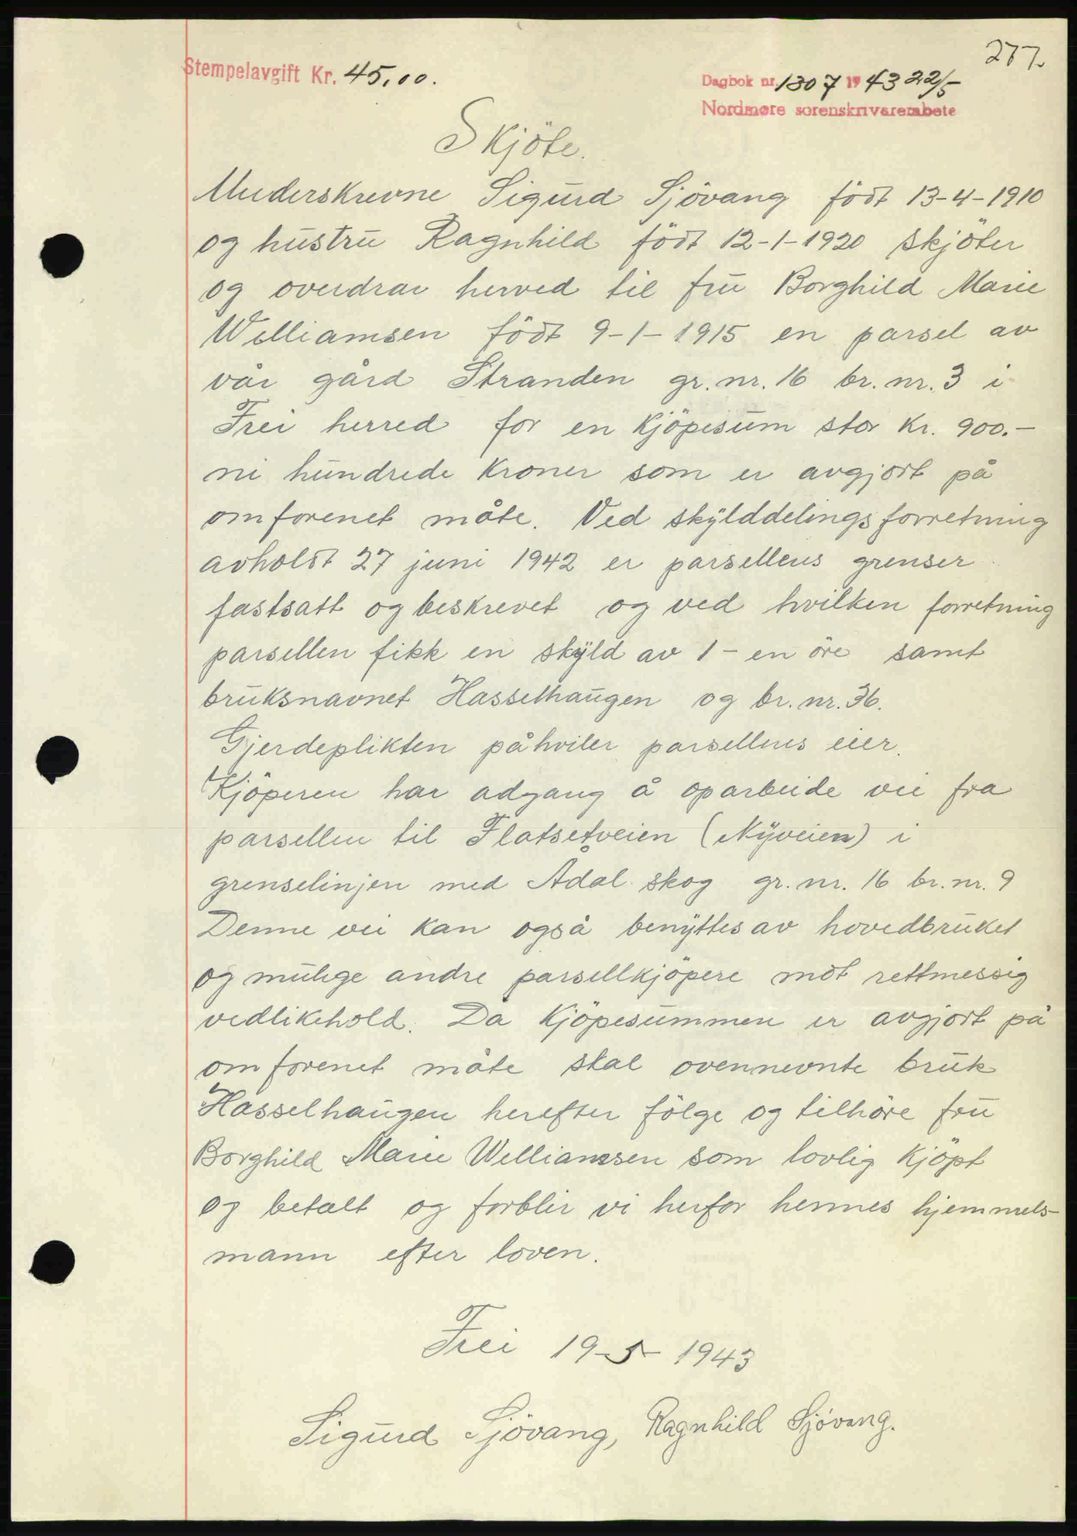 277.
Stempelavgift Kr. 45,00.
Dagbok nr. 1307 1943 22/5
Nordmøre sorenskriverembete
Skjöte.
Underskrevne Sigurd Sjövang födt 13-4-1910
og hustru Ragnhild födt 12-1-1920 skjöter
og overdrar herved til fru Borghild Marie
Williamsen födt 9-1-1915 en parsel av
vår gård Stranden gr. nr. 16 br. nr. 3 i
Frei herred for en kjöpesum stor kr. 900.-
ni hundrede kroner som er avgjort på
omforenet måte. Ved skylddelingsforretning
avholdt 27 juni 1942 er parsellens grenser
fastsatt og beskrevet og ved hvilken forretning
parsellen fikk en skyld av 1- en öre samt
bruksnavnet Hasselhaugen og br. nr. 36.
Gjerdeplikten påhviler parsellens eier.
Kjöperen har adgang å oparbeide vei fra
parsellen til Flatsetveien (Nyveien) i
grenselinjen med Ådal skog gr. nr. 16 br. nr. 9
Denne vei kan også benyttes av hovedbruket
og mulige andre parsellkjöpere mot rettmessig
vedlikehold. Da kjöpesummen er avgjort på
omforenet måte skal ovennevnte bruk
Hasselhaugen herefter fölge og tilhöre fru
Borghild Marie Williamsen som lovlig kjöpt
og betalt og forblir vi herfor hennes hjemmels-
mann efter loven.
Frei 19-5-1943
Sigurd Sjövang, Ragnhild Sjövang.